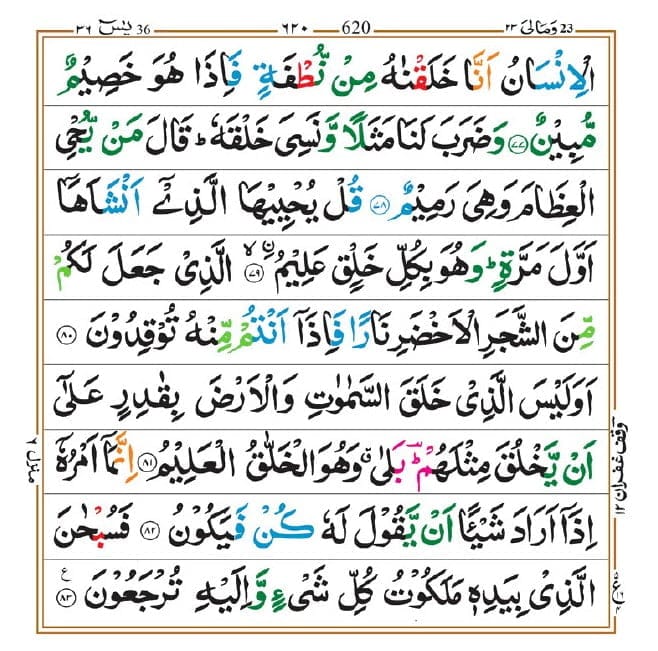 36 يٰسٓ ٣٦ 620 ٦٢٠ 23 وَمَالِیَ ٢٣
الْاِنْسَانُ اَنَّا خَلَقْنٰهُ مِنْ نُّطْفَةٍ فَاِذَا هُوَ خَصِیْمٌ
مُّبِیْنٌ ﴿٧٧﴾ وَضَرَبَ لَنَا مَثَلًا وَّنَسِیَ خَلْقَهٗ ؕ قَالَ مَنْ یُّحْیِ
الْعِظَامَ وَهِیَ رَمِیْمٌ ﴿٧٨﴾ قُلْ یُحْیِیْهَا الَّذِیْۤ اَنْشَاَهَاۤ
اَوَّلَ مَرَّةٍ ؕ وَهُوَ بِكُلِّ خَلْقٍ عَلِیْمُ ۨ ﴿٧٩﴾ ۙ الَّذِیْ جَعَلَ لَكُمْ
مِّنَ الشَّجَرِ الْاَخْضَرِ نَارًا فَاِذَاۤ اَنْتُمْ مِّنْهُ تُوْقِدُوْنَ ﴿٨٠﴾
اَوَلَیْسَ الَّذِیْ خَلَقَ السَّمٰوٰتِ وَالْاَرْضَ بِقٰدِرٍ عَلٰۤی
اَنْ یَّخْلُقَ مِثْلَهُمْ ؕ بَلٰی ۗ وَهُوَ الْخَلّٰقُ الْعَلِیْمُ ﴿٨١﴾ اِنَّمَاۤ اَمْرُهٗۤ
اِذَاۤ اَرَادَ شَیْـًٔا اَنْ یَّقُوْلَ لَهٗ كُنْ فَیَكُوْنُ ﴿٨٢﴾ فَسُبْحٰنَ
الَّذِیْ بِیَدِهٖ مَلَكُوْتُ كُلِّ شَیْءٍ وَّاِلَیْهِ تُرْجَعُوْنَ ﴿٨٣﴾ ع
وقف غفران ١٢